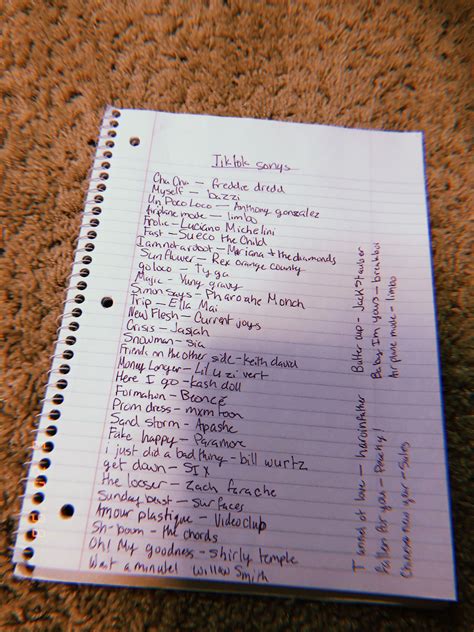 Tiktok songs
Cha Cha — freddie dredd
Myself — bazzi
Un Poco Loco — Anthony gonzalez
Airplane mode — limbo
Frolic — Luciano Michelini
Fast — Sueco the Child
Iamnotarobot — Mariana & the diamonds
Sunflower — Rex orange county
goloco — Tyga
Magic — Yung gravy
Simon says — Pharoahe Monch
Trip — Ella Mai
New Flesh — Current joys
Crisis — Jasiah
Snowman — sia
Friends on the other side — keith david
Money Longer — Lil uzi vert
Here I go — kash doll
Formation — Beoncé
Prom dress — mxm toon
Sand storm — Apashe
Fake happy — Paramore
i just did a bad thing — bill wurtz
get down — SIX
the looser — Zach farache
Sunday best — surfaces
Amour plastique — Videoclub
Sh-boom — the chords
Oh! My goodness — shirly temple
Wait a minute! Willow Smith
Butter cup — Jack Stauber
Baby Im yours — breakbot
Air plane mode — limbo
Tunnel of love — haroinfather
Fallen for you —
Chanel new year — Sales